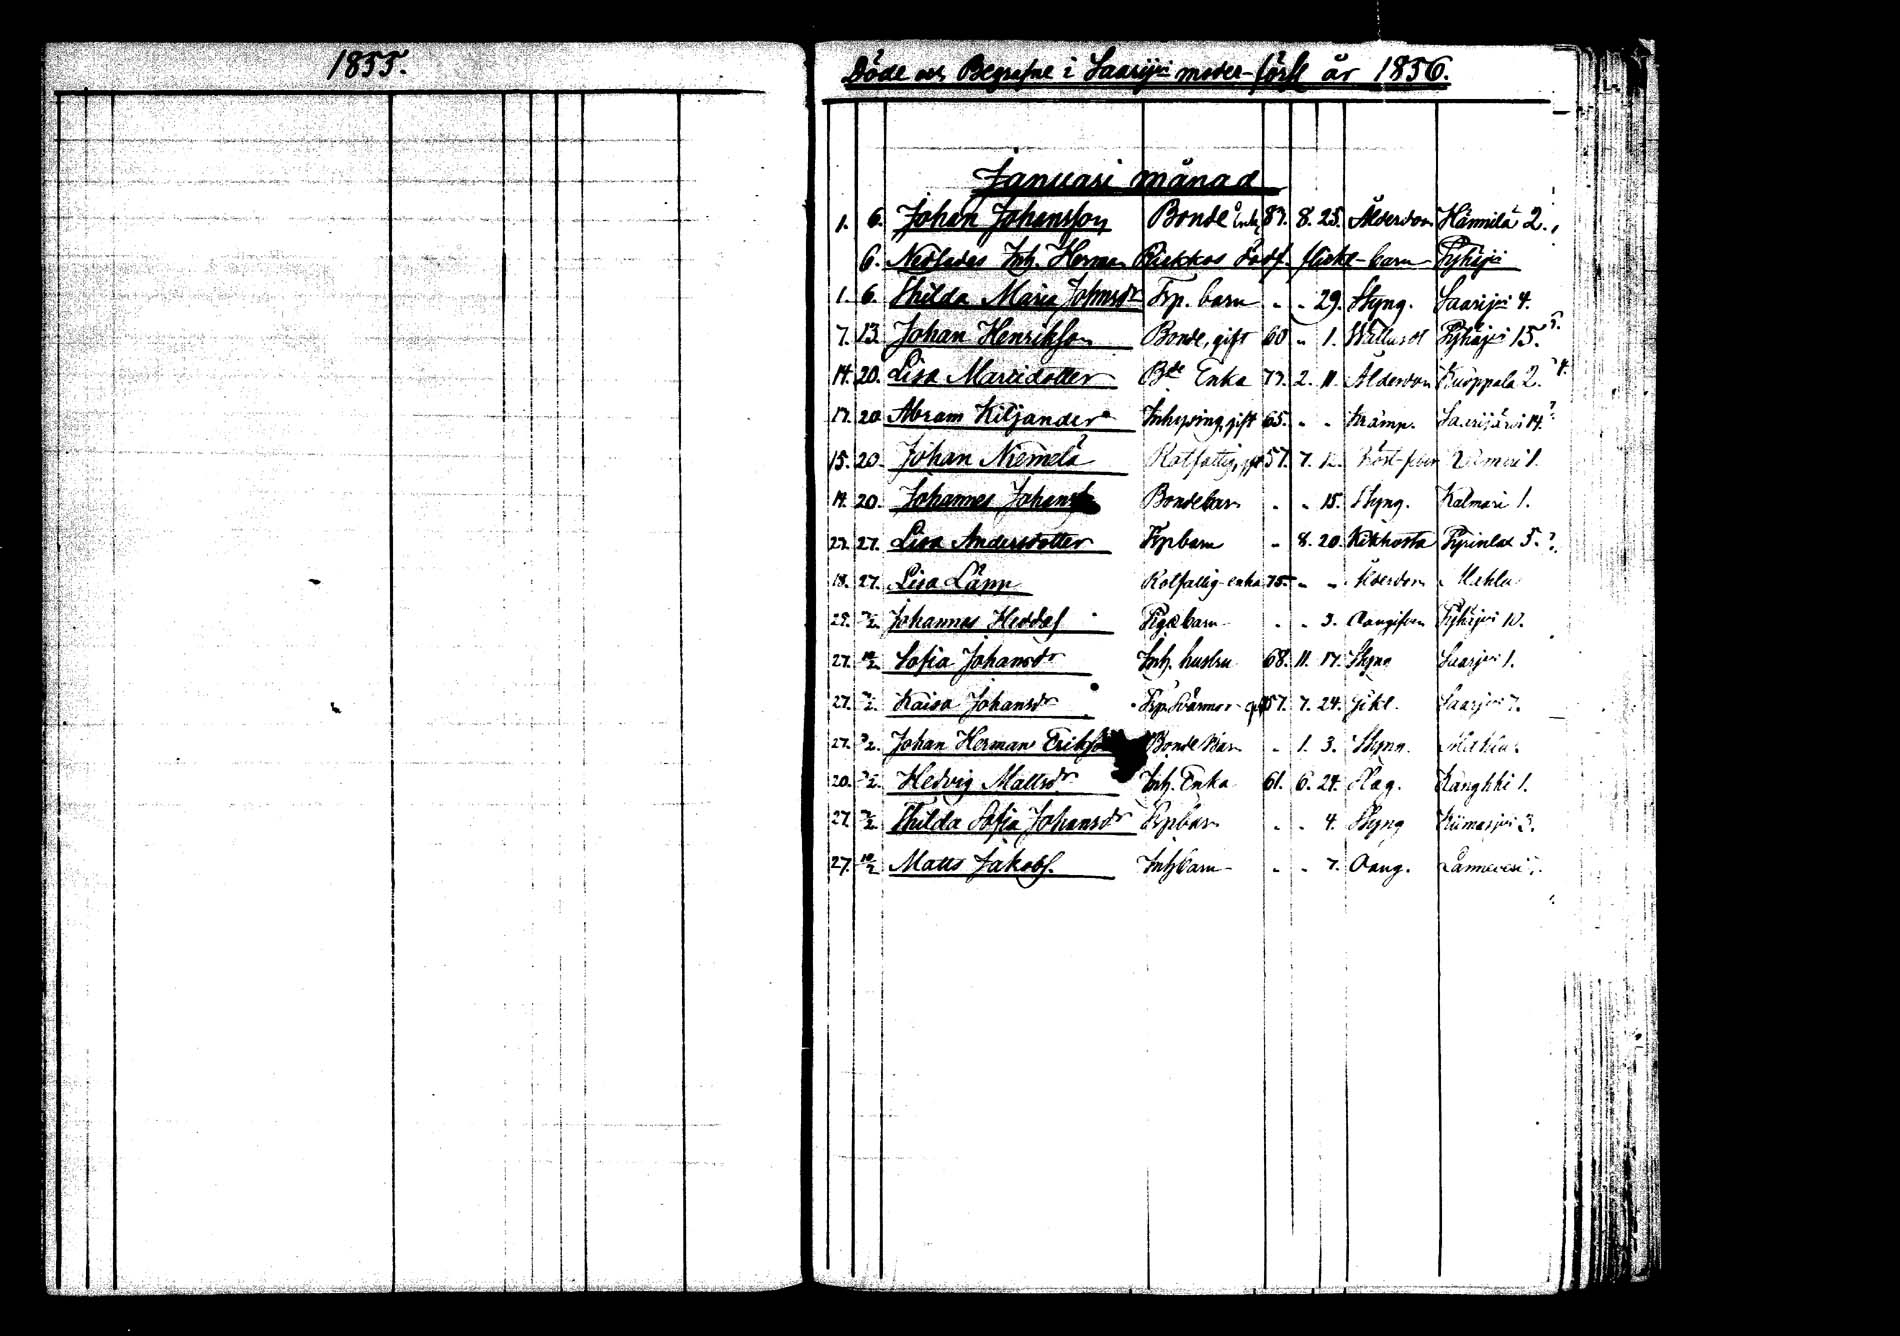 1855.
Döde och Begrafne i Saarijvi moder-förs år 1856.
Januari månad
1. 6. Johan Johansson Bonde Enkl 87. 8. 25. Ålderdom Hännilä 2.
6. Nedlades Inh. Herman Riekkos dödf. flicke-barn Pyhäjvi
1. 6. Thilda Maria Johansdr Trp. barn - - 29. Slyng. Saarijvi 4.
7. 13. Johan Henriksson Bonde, gift 60 - 1. Wattusot Pyhäjvi 15.
14. 20. Lisa Mattsdotter Bde Enka 77. 2. 11. Ålderdom Kuoppala 2.
17. 20 Abram Kiljander Inhysing, gift 65. - - Kramp. Saarijärvi 14.
15. 20. Johan Niemelä Rotfattig, gift 57. 7. 12. Röst-feber 1.
14. 20. Johannes Johanss Bondebarn - - 15. Slyng. Kalmari 1.
23. 27. Lisa Andersdotter Trpbarn - 8. 20. Kikhosta Pyrinlax 5.
18. 27. Lisa Lämp Rotfattig-enka 75 - - Ålderdom Mahlu
25. 3/2. Johannes Heddaf Pigebarn - - 3. Oangifven Pyhäjvi 10.
27. 10/2 Sofia Johansdr Inh. hustru 68. 11. 17. Slyng Saarijvi 1.
27. 3/2. Kaisa Johansdr Trp. Svärmor gift 57. 7. 24. Gikt. Saarijvi 7.
27. 3/2. Johan Herman Eriksson Bonde barn - 1. 3. Slyng. Mahlu
20. 3/2. Hedvig Mattsdr Inh. Enka 61. 6. 24. Slag. Kanghki 1.
27. 3/2. Thilda Sofia Johansdr Trpbarn - - 4. Slyng Kiimasjvi 3.
27. 10/2 Matts Jakobs. Inhbarn - - 7. Oang. Lannevesi